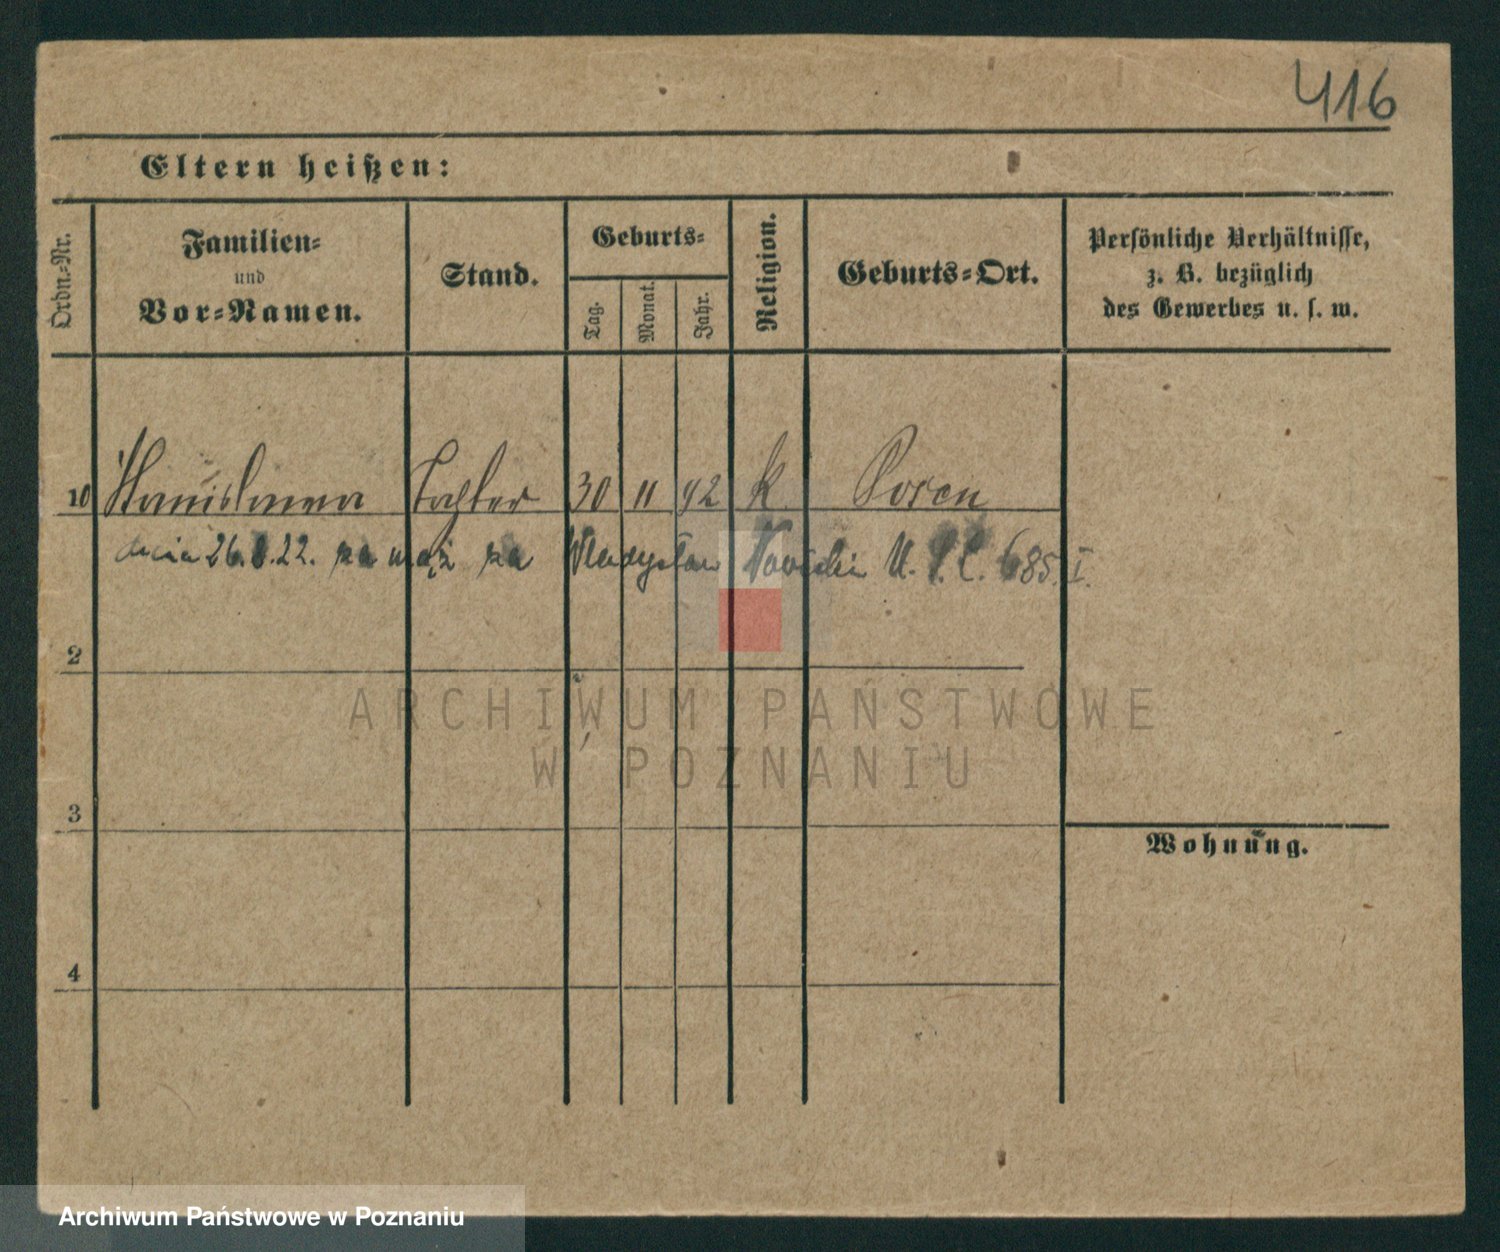 416
Eltern heißen:
Ordn.-Nr.
Familien-
und
Vor-Namen.
Stand.
Geburts-
Tag.
Monat.
Jahr.
Religion.
Geburts-Ort.
Persönliche Verhältnisse,
z. B. bezüglich
des Gewerbes u. s. w.
10 Stanislawa Tochter 30 11 92 k. Posen
dnia 26.8.22. za mąż za Władysław U. S. C. 685. I.
2
3
Wohnung.
4
ARCHIWUM PAŃSTWOWE
W POZNANIU
Archiwum Państwowe w Poznaniu